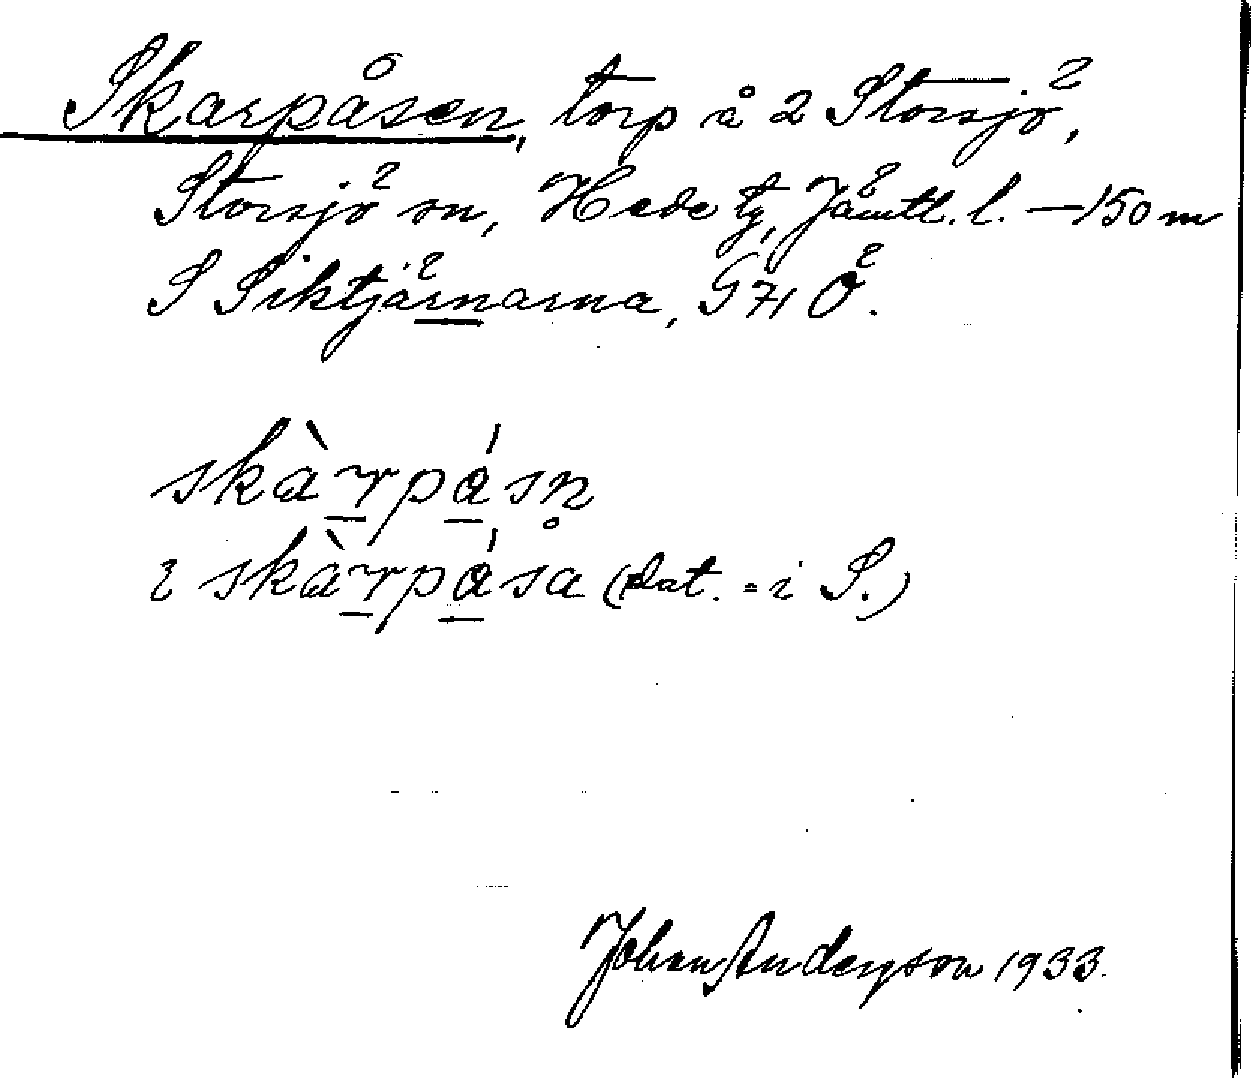 Skarpåsen, torp å 2 Storsjö,
Storsjö sn, Hede tg, Jämtl. l. — 150 m
S Siktjärnarna, G 71 Ö.
skàrpásn̥
i skàrpása (dat. = i S.)
Johan Anderson 1933.